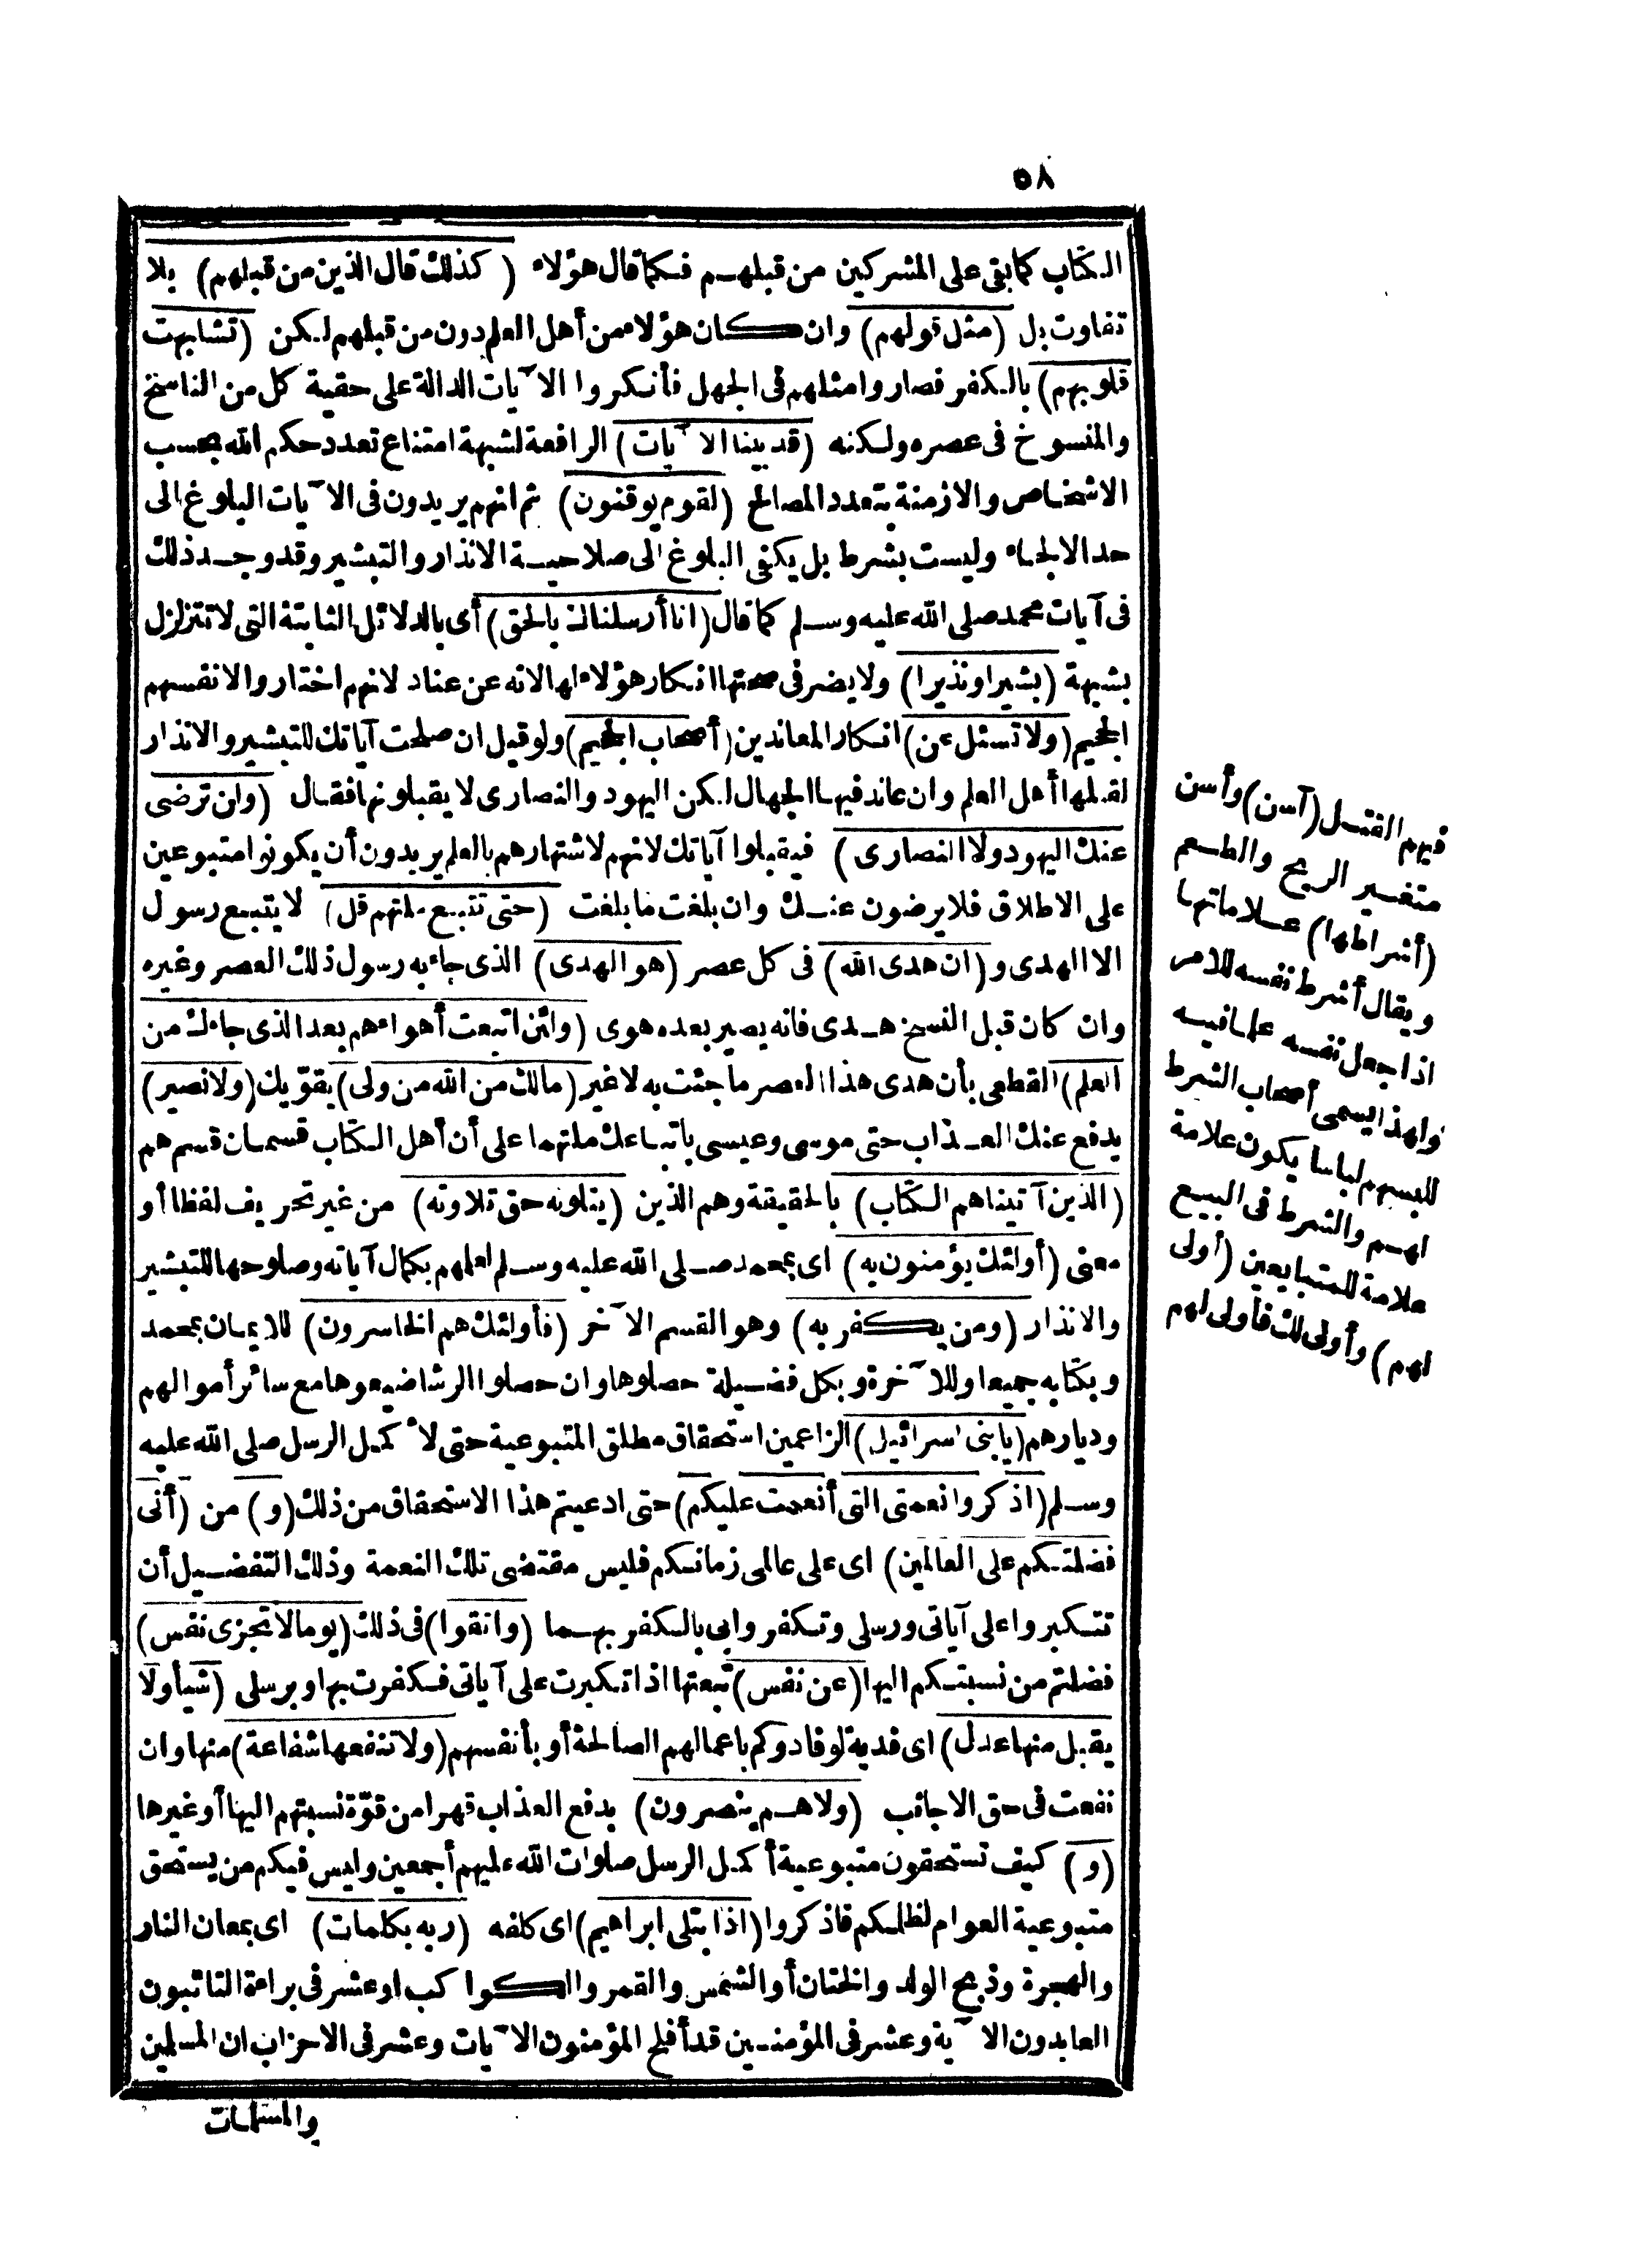 ٥٨
الكتاب كما بقى على المشركين من قبلهم فكما قال هؤلاء (كذلك قال الذين من قبلهم) بلا
تفاوت بل (مثل قولهم) وان كان هؤلاء من أهل العلم دون من قبلهم لكن (تشابهت
قلوبهم) بالكفر فصاروا مثلهم فى الجهل فأنكروا الآيات الدالة على حقية كل من الناسخ
والمنسوخ فى عصره ولكنه (قد بينا الآيات) الرافعة لشبهة امتناع تعدد حكم الله بحسب
الاشخاص والازمنة بتعدد المصالح (لقوم يوقنون) ثم انهم يريدون فى الآيات البلوغ الى
حد الالجاء وليست بشرط بل يكفى البلوغ الى صلاحية الانذار والتبشير وقد وجد ذلك
فى آيات محمد صلى الله عليه وسلم كما قال (انا أرسلناك بالحق) أى بالدلائل الثابتة التى لا تتزلزل
بشبهة (بشيرا ونذيرا) ولا يضر فى صحتها انكار هؤلاء لها لانه عن عناد لانهم اختاروا لانفسهم
الجحيم (ولا تسئل عن) انكار المعاندين (أصحاب الجحيم) ولو قيل ان صلحت آياتك للتبشير والانذار
لقبلها أهل العلم وان عاند فيها الجهال لكن اليهود والنصارى لا يقبلونها فقال (وان ترضى
عنك اليهود ولا النصارى) فيقبلوا آياتك لانهم لاشتهارهم بالعلم يريدون أن يكونوا متبوعين
على الاطلاق فلا يرضون عنك وان بلغت ما بلغت (حتى تتبع ملتهم قل) لا يتبع رسول
الا الهدى و(ان هدى الله) فى كل عصر (هو الهدى) الذى جاء به رسول ذلك العصر وغيره
وان كان قبل النسخ هدى فانه يصير بعده هوى (ولئن اتبعت أهواءهم بعد الذى جاءك من
العلم) القطعى بأن هدى هذا العصر ما جئت به لا غير (مالك من الله من ولى) يقويك (ولا نصير)
يدفع عنك العذاب حتى موسى وعيسى باتباعك ملتهما على أن أهل الكتاب قسمان قسم هم
(الذين آتيناهم الكتاب) بالحقيقة وهم الذين (يتلونه حق تلاوته) من غير تحريف لفظا أو
معنى (أولئك يؤمنون به) اى بمحمد صلى الله عليه وسلم لعلمهم بكمال آياته وصلوحها للتبشير
والانذار (ومن يكفر به) وهو القسم الآخر (فأولئك هم الخاسرون) للايمان بمحمد
وبكتابه جميعا وللآخرة وبكل فضيلة حصلوها وان حصلوا الرشا ضيعوها مع سائر أموالهم
وديارهم (يا بنى اسرائيل) الزاعمين استحقاق مطلق المتبوعية حتى لا كمل الرسل صلى الله عليه
وسلم (اذكروا نعمتى التى أنعمت عليكم) حتى ادعيتم هذا الاستحقاق من ذلك (و) من (أنى
فضلتكم على العالمين) اى على عالمى زمانكم فليس مقتضى تلك النعمة وذلك التفضيل أن
تتكبروا على آياتى ورسلى وتكفروا بى بالكفر بهما (واتقوا) فى ذلك (يوما لا تجزى نفس)
فضلتم من نسبتكم اليها (عن نفس) تبعتها اذا تكبرت على آياتى فكفرت بها وبرسلى (شيأ ولا
يقبل منها عدل) اى فدية لو فادوكم باعمالهم الصالحة أو بأنفسهم (ولا تنفعها شفاعة) منها وان
نفعت فى حق الاجانب (ولا هم ينصرون) بدفع العذاب قهرا من قوة نسبتهم اليها أو غيرها
(و) كيف تستحقون متبوعية أكمل الرسل صلوات الله عليهم أجمعين وليس فيكم من يستحق
متبوعية العوام لظلمكم فاذكروا (اذ ابتلى ابراهيم) اى كلفه (ربه بكلمات) اى بمعان النار
والهجرة وذبح الولد والختان أو الشمس والقمر والكواكب او عشر فى براءة التائبون
العابدون الآية وعشر فى المؤمنين قد أفلح المؤمنون الآيات وعشر فى الاحزاب ان المسلمين
والمسلمات
فيهم القتل (آسن) وأسن
متغير الريح والطعم
(أشراطها) علاماتها
ويقال أشرط نفسه للامر
اذا جعل نفسه علما فيه
ولهذا يسمى أصحاب الشرط
للبسهم لباسا يكون علامة
لهم والشرط فى البيع
علامة للمتبايعين (أولى
لهم) وأولى لك فأولى لهم